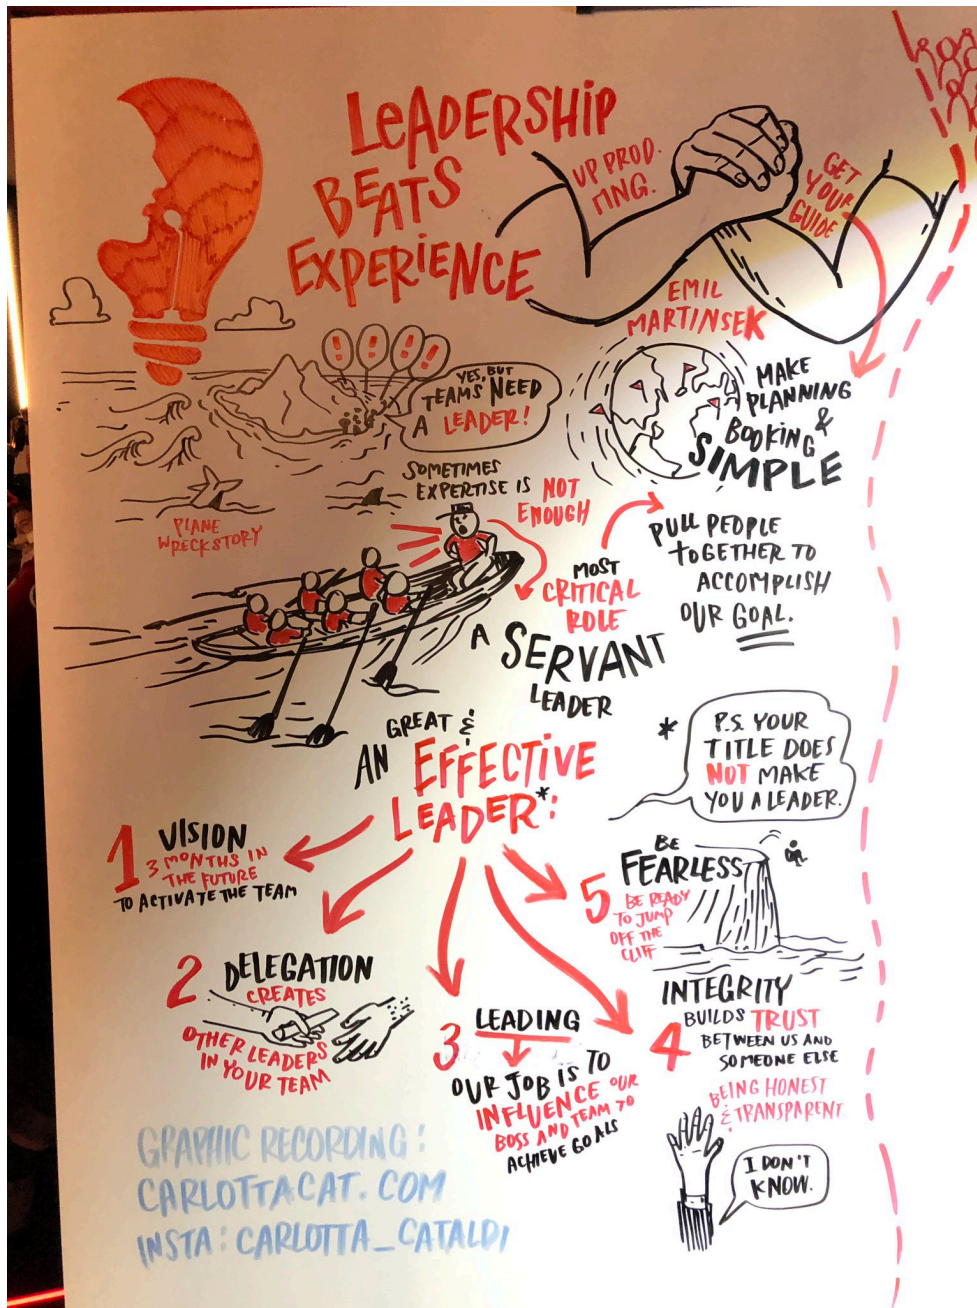 LEADERSHIP
BEATS
EXPERIENCE
UP PROD.
MNG.
GET
YOUR
GUIDE
EMIL
MARTINSEK
MAKE
PLANNING
&
BOOKING
SIMPLE
!
!
!
!
YES, BUT
TEAMS NEED
A LEADER!
SOMETIMES
EXPERTISE IS NOT
ENOUGH
PLANE
WRECKSTORY
MOST
CRITICAL
ROLE
PULL PEOPLE
TOGETHER TO
ACCOMPLISH
OUR GOAL.
A SERVANT
LEADER
AN GREAT &
EFFECTIVE
LEADER*:
* P.S. YOUR
TITLE DOES
NOT MAKE
YOU A LEADER.
1 VISION
3 MONTHS IN
THE FUTURE
TO ACTIVATE THE TEAM
2 DELEGATION
CREATES
OTHER LEADERS
IN YOUR TEAM
3 LEADING
OUR JOB IS TO
INFLUENCE OUR
BOSS AND TEAM TO
ACHIEVE GOALS
INTEGRITY
4 BUILDS TRUST
BETWEEN US AND
SOMEONE ELSE
BEING HONEST
& TRANSPARENT
I DON'T
KNOW.
5 BE
FEARLESS
BE READY
TO JUMP
OFF THE
CLIFF
GRAPHIC RECORDING:
CARLOTTACAT.COM
INSTA: CARLOTTA_CATALDI